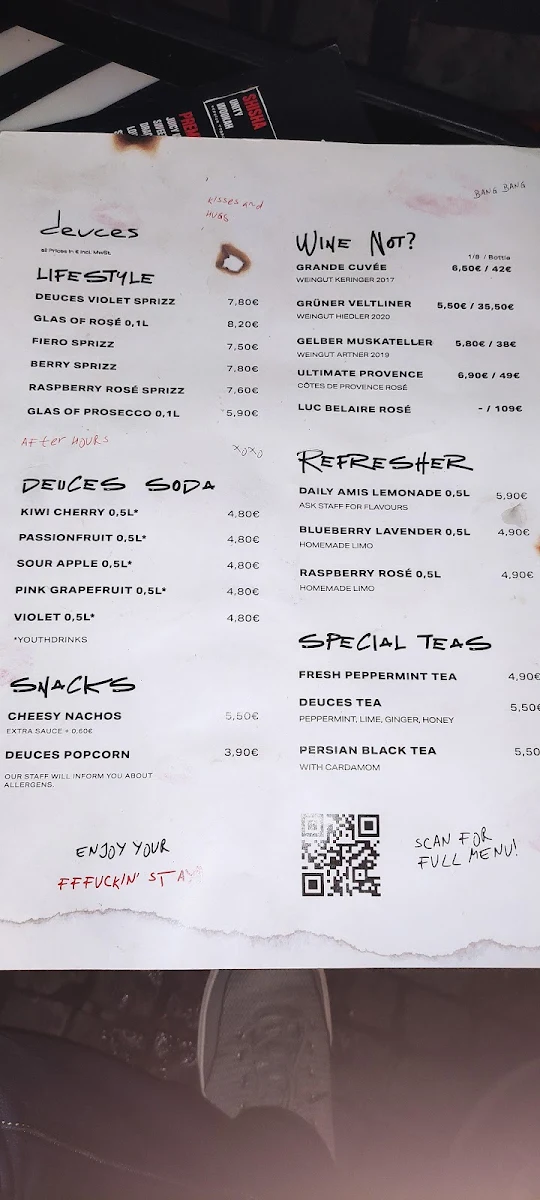 SHISHA
UNITY
HOOKAH
PREM
JUICY
kisses and
HUGS
BANG BANG
deuces
all Prices in € incl. MwSt.
LIFESTYLE
DEUCES VIOLET SPRIZZ 7,80€
GLAS OF ROSÉ 0,1L 8,20€
FIERO SPRIZZ 7,50€
BERRY SPRIZZ 7,80€
RASPBERRY ROSÉ SPRIZZ 7,60€
GLAS OF PROSECCO 0,1L 5,90€
AFTER HOURS
XOXO
DEUCES SODA
KIWI CHERRY 0,5L* 4,80€
PASSIONFRUIT 0,5L* 4,80€
SOUR APPLE 0,5L* 4,80€
PINK GRAPEFRUIT 0,5L* 4,80€
VIOLET 0,5L* 4,80€
*YOUTHDRINKS
SNACKS
CHEESY NACHOS 5,50€
EXTRA SAUCE + 0,60€
DEUCES POPCORN 3,90€
OUR STAFF WILL INFORM YOU ABOUT
ALLERGENS.
ENJOY YOUR
FFFUCKIN' STAY
WINE NOT?
1/8 / Bottle
GRANDE CUVÉE 6,50€ / 42€
WEINGUT KERINGER 2017
GRÜNER VELTLINER 5,50€ / 35,50€
WEINGUT HIEDLER 2020
GELBER MUSKATELLER 5,80€ / 38€
WEINGUT ARTNER 2019
ULTIMATE PROVENCE 6,90€ / 49€
CÔTES DE PROVENCE ROSÉ
LUC BELAIRE ROSÉ - / 109€
REFRESHER
DAILY AMIS LEMONADE 0,5L 5,90€
ASK STAFF FOR FLAVOURS
BLUEBERRY LAVENDER 0,5L 4,90€
HOMEMADE LIMO
RASPBERRY ROSÉ 0,5L 4,90€
HOMEMADE LIMO
SPECIAL TEAS
FRESH PEPPERMINT TEA 4,90€
DEUCES TEA 5,50€
PEPPERMINT, LIME, GINGER, HONEY
PERSIAN BLACK TEA 5,50
WITH CARDAMOM
SCAN FOR
FULL MENU!